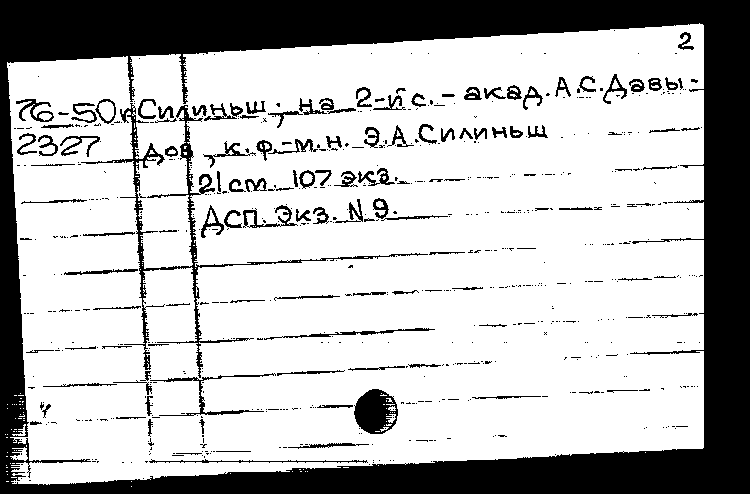 2
76-50к Силиньш; на 2-й с. - акад. А.С.Давы-
2327 дов, к.ф.-м.н. Э.А.Силиньш
21 см. 107 экз.
ДСП. Экз. N 9.